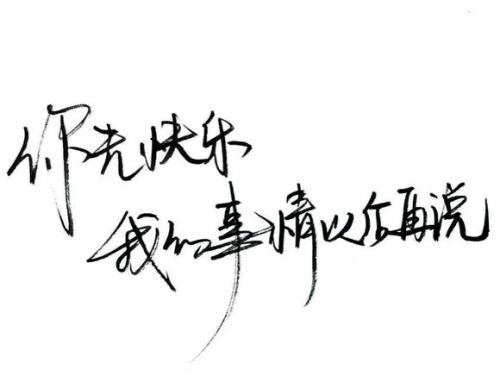 你先快乐
我的事情以后再说